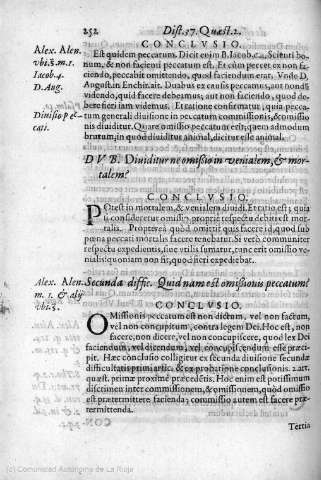 252 Dist. 37. Quæst. 2.
CONCLVSIO.
Alex. Alen.
vbi. s. m. 1.
Iacob. 4.
D. Aug.
Est quidem peccatum. Dicit enim B. Iacob. c. 4. Scituri bonum, & non facienti peccatum est. Et cùm peccet ex non faciendo, peccabit omittendo, quod faciendum erat. Vnde D.
August. in Enchir. ait: Duabus ex causis peccamus, aut non
videndo, quid facere debeamus, aut non faciendo, quod
Diuisio peccati.
debere fieri iam videmus. Et ratione confirmatur, quia peccatum generali diuisione in peccatum commissionis, & omissionis diuiditur. Quare omisio peccatum erit, quem admodum
brutum, in quod diuiditur animal, dicitur esse animal.
DVB. Diuiditur ne omisio in venialem, & mortalem?
CONCLVSIO.
Potest in mortalem, & venialem diuidi. Et ratio est; quia
si consideretur omisio, propriè respectu debiti est mortalis. Propterea quòd omittit quis facere id, quod sub
pœna peccati mortalis facere tenebatur. Si verò communiter
respectu expedientis, siue vtilis sumatur, tunc erit omisio venialis; quoniam non fit, quod fieri expediebat.
Alex. Alen.
m. 1. & alij
Secunda diffic. Quid nam est omissionis peccatum?
CONCLVSIO.
Omissionis peccatum est non dictum, vel non factum,
vel non concupitum, contra legem Dei. Hoc est, non
facere, non dicere, vel non concupiscere, quod lex Dei
faciendum, vel dicendum, vel concupiscendum esse præcipit. Hæc conclusio colligitur ex secunda diuisione secundæ
difficultatis primi artic. & ex probatione conclusionis. 2. art.
quæst. primæ proximè præcedétis. Hoc enim est potissimum
discrimen inter commissionem, & omissionem, quòd omissio
est prætermittere facienda; commissio autem est facere prætermittenda.
Tertia
(c) Comunidad Autónoma de La Rioja